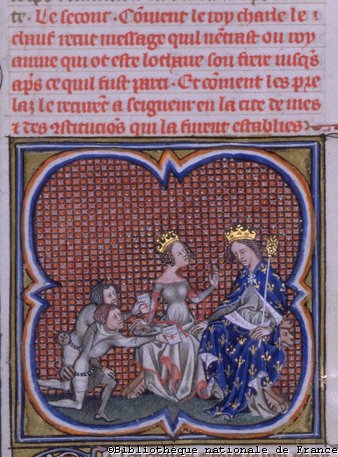 te. Le second. Coment le roy charle le
chauf recut message quil nentrast ou roy
aume qui ot este lothaire son frere iusqs
aps ce quil fust parti. Et coment les pre
laz le recurent a seigneur en la cite de mes
⁊ des istitucios qui la furent establies
©Bibliothèque nationale de France